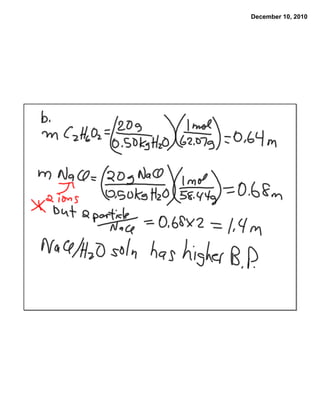 December 10, 2010
b.
m C₂H₆O₂ = (20g / 0.50kg H₂O)(1mol / 62.07g) = 0.64m
m NaCl = (20g NaCl / 0.50kg H₂O)(1mol / 58.44g) = 0.68m
* 2 ions
but 2 particle / NaCl = 0.68x2 = 1.4m
NaCl/H₂O soln has higher B.P.